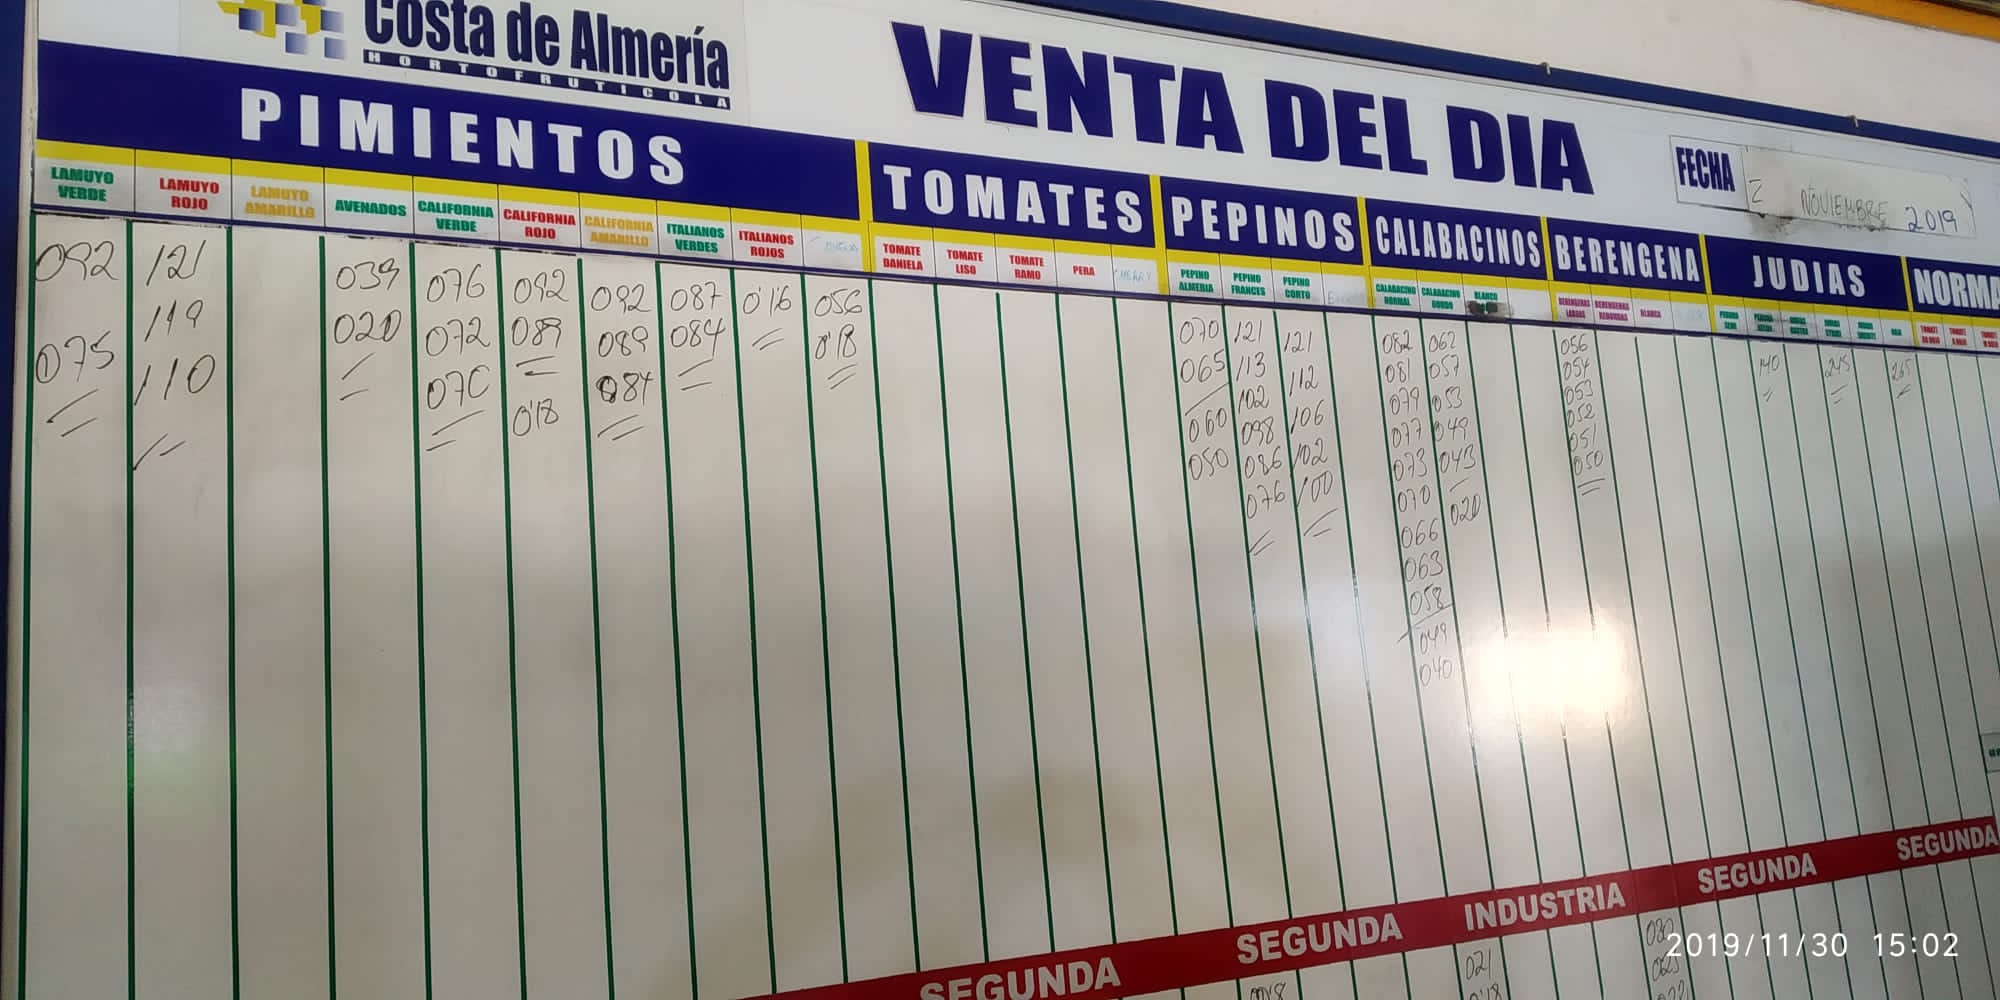 Costa de Almería
HORTOFRUTICOLA
VENTA DEL DIA
FECHA
NOVIEMBRE 2019
PIMIENTOS
TOMATES
PEPINOS
CALABACINOS
BERENGENA
JUDIAS
NORMA
LAMUYO VERDE
LAMUYO ROJO
LAMUYO AMARILLO
AVENADOS
CALIFORNIA VERDE
CALIFORNIA ROJO
CALIFORNIA AMARILLO
ITALIANOS VERDES
ITALIANOS ROJOS
TOMATE DANIELA
TOMATE LISO
TOMATE RAMO
PERA
PEPINO ALMERIA
PEPINO FRANCES
PEPINO CORTO
CALABACINO NORMAL
CALABACINO GORDO
BLANCO
BERENGENAS LARGAS
BERENGENAS REDONDAS
BLANCA
092
075
121
119
110
039
020
076
072
070
092
089
0'18
092
089
084
087
084
0'16
056
0'18
070
065
060
050
121
113
102
098
086
076
121
112
106
102
100
082
081
079
077
073
070
066
063
058
049
040
062
057
053
049
043
020
056
054
053
052
051
050
140
245
265
SEGUNDA
SEGUNDA
INDUSTRIA
SEGUNDA
SEGUNDA
021
0'18
2019/11/30 15:02